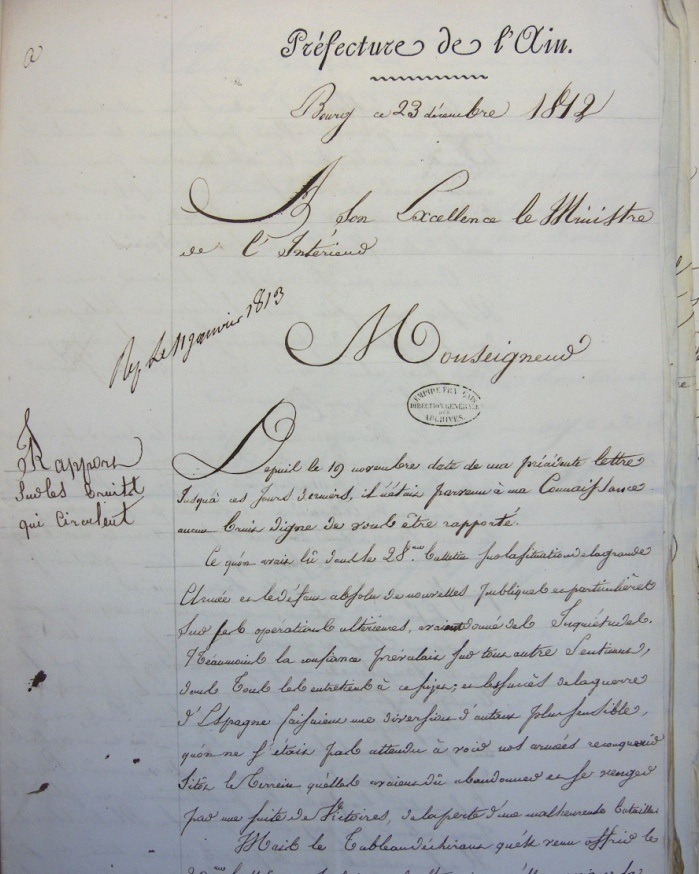 Préfecture de l'Ain.
Bourg ce 23 décembre 1812
A Son Excellence le Ministre
de l'Intérieur
Rep. Le 11 janvier 1813
Monseigneur
EMPIRE FRANÇAIS
DIRECTION GENERALE
DES
ARCHIVES.
Rapport
Sur les bruits
qui circulent
Depuis le 19 novembre date de ma précédente lettre
Jusqu'à ces jours derniers, il n'était parvenu à ma Connaissance
aucun bruit digne de vous être rapporté.
Ce qu'on avait lû dans le 28.me bulletin sur la situation de la grande
Armée et le défaut absolu de nouvelles publiques et particulières
Sur ses opérations ultérieures, avaient donné des Inquiétudes.
Néanmoins la confiance prévalait sur tous autre Sentiment,
dans tous les entretiens à ce sujet; et les succès de la guerre
d'Espagne faisaient une diversion d'autant plus sensible,
qu'on ne s'était pas attendu à voir nos armées reconquérir
Sitôt le terrein qu'elles avaient dû abandonner et se venger
par une suite de Victoires, de la perte d'une malheureuse bataille.
Mais le Tableau déchirant qu'est venu offrir le